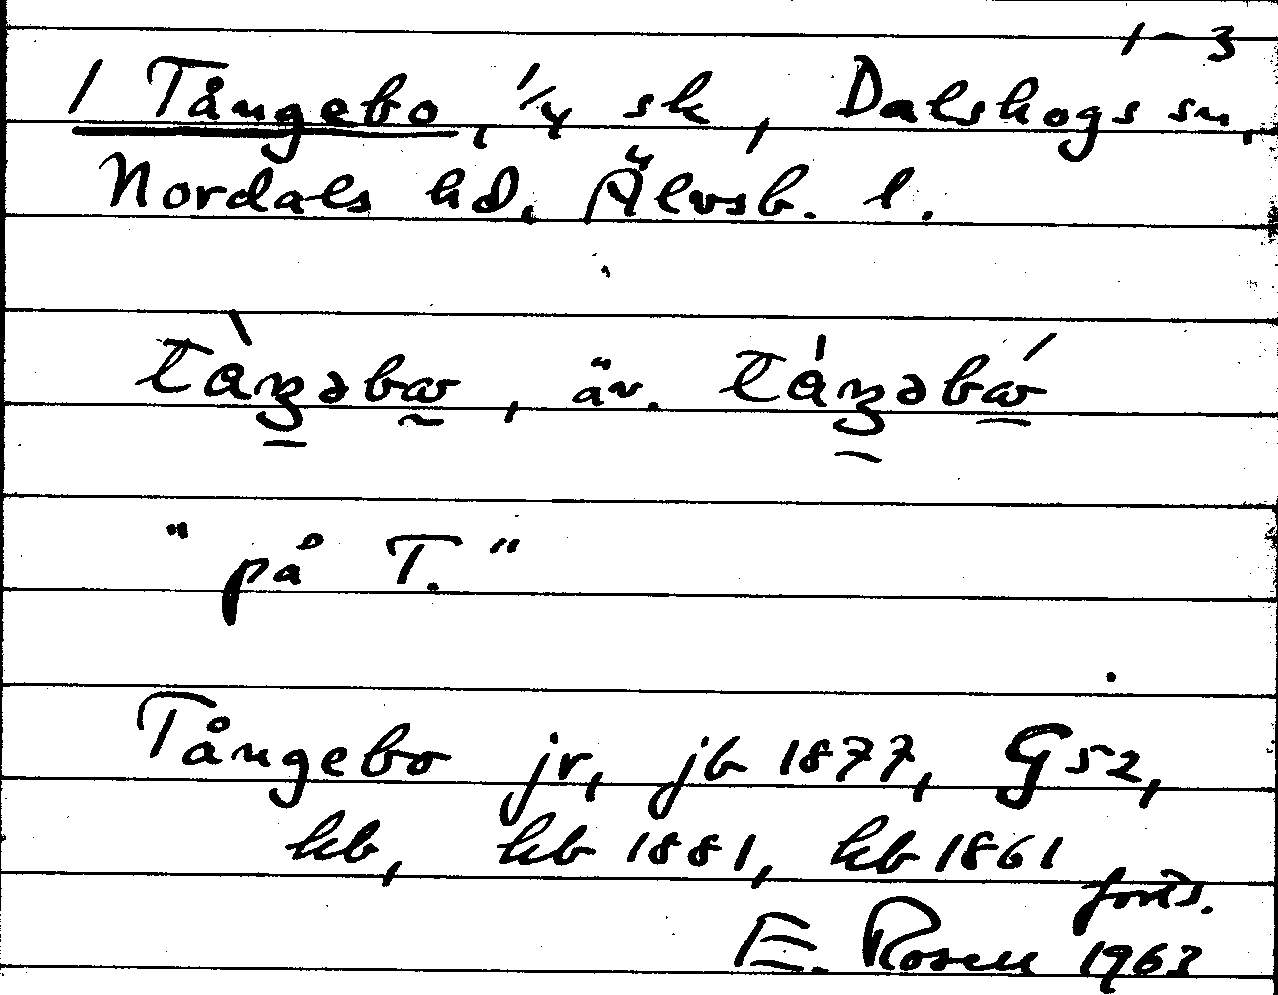 1-3
1 Tångebo, 1/4 sk, Dalskogs sn,
Nordals hd. Älvsb. l.
, äv.
"på T."
Tångebo jr, jb 1877, G52,
kb, hb 1881, hb 1861
forts.
E. Rosell 1963